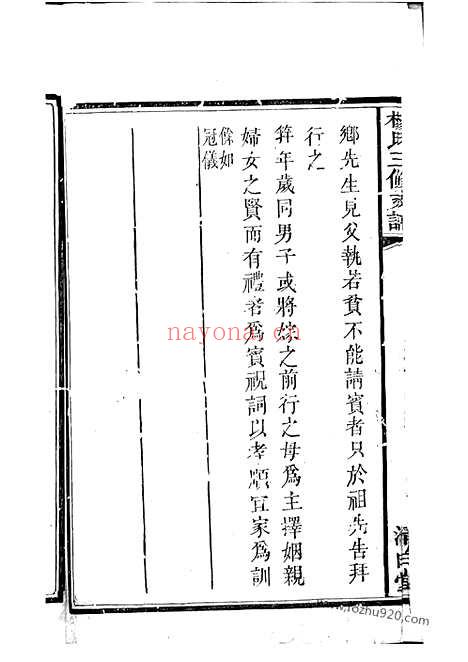 楊氏三修支譜
鄉先生見父執若貧不能請賓者只於祖先告拜
行之
笄年歲同男子或將嫁之前行之母為主擇姻親
婦女之賢而有禮者為賓祝詞以孝順宜家為訓
餘如
冠儀
清白堂
nayona.cn
www.fozhu920.com